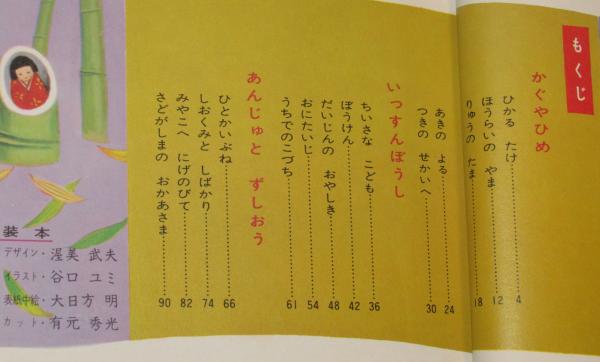 もくじ
かぐやひめ
ひかる たけ……4
ほうらいの やま……12
りゅうの たま……18
あきの よる……24
つきの せかいへ……30
いっすんぼうし
ちいさな こども……36
ぼうけん……42
だいじんの おやしき……48
おにたいじ……54
うちでのこづち……61
あんじゅと ずしおう
ひとかいぶね……66
しおくみと しばかり……74
みやこへ にげのびて……82
さどがしまの おかあさま……90
装本
デザイン・渥美 武夫
イラスト・谷口 ユミ
表紙中絵・大日方 明
カット・有元 秀光